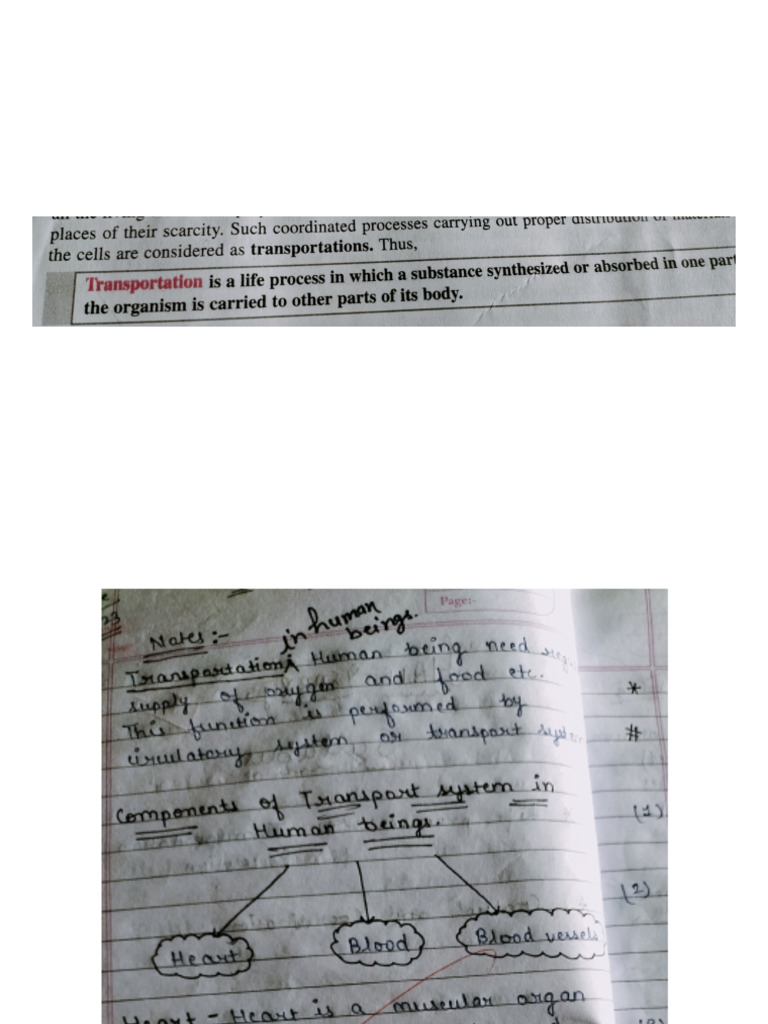 places of their scarcity. Such coordinated processes carrying out proper distribution of
the cells are considered as transportations. Thus,
Transportation is a life process in which a substance synthesized or absorbed in one part
the organism is carried to other parts of its body.
23
Page:-
Notes:-
in human beings.
Transportation Human being need
supply of oxygen and food etc.
This function is performed by
circulatory system or transport
Components of Transport system in
Human beings.
Heart
Blood
Blood vessels
Heart - Heart is a muscular organ
*
#
(1)
(2)